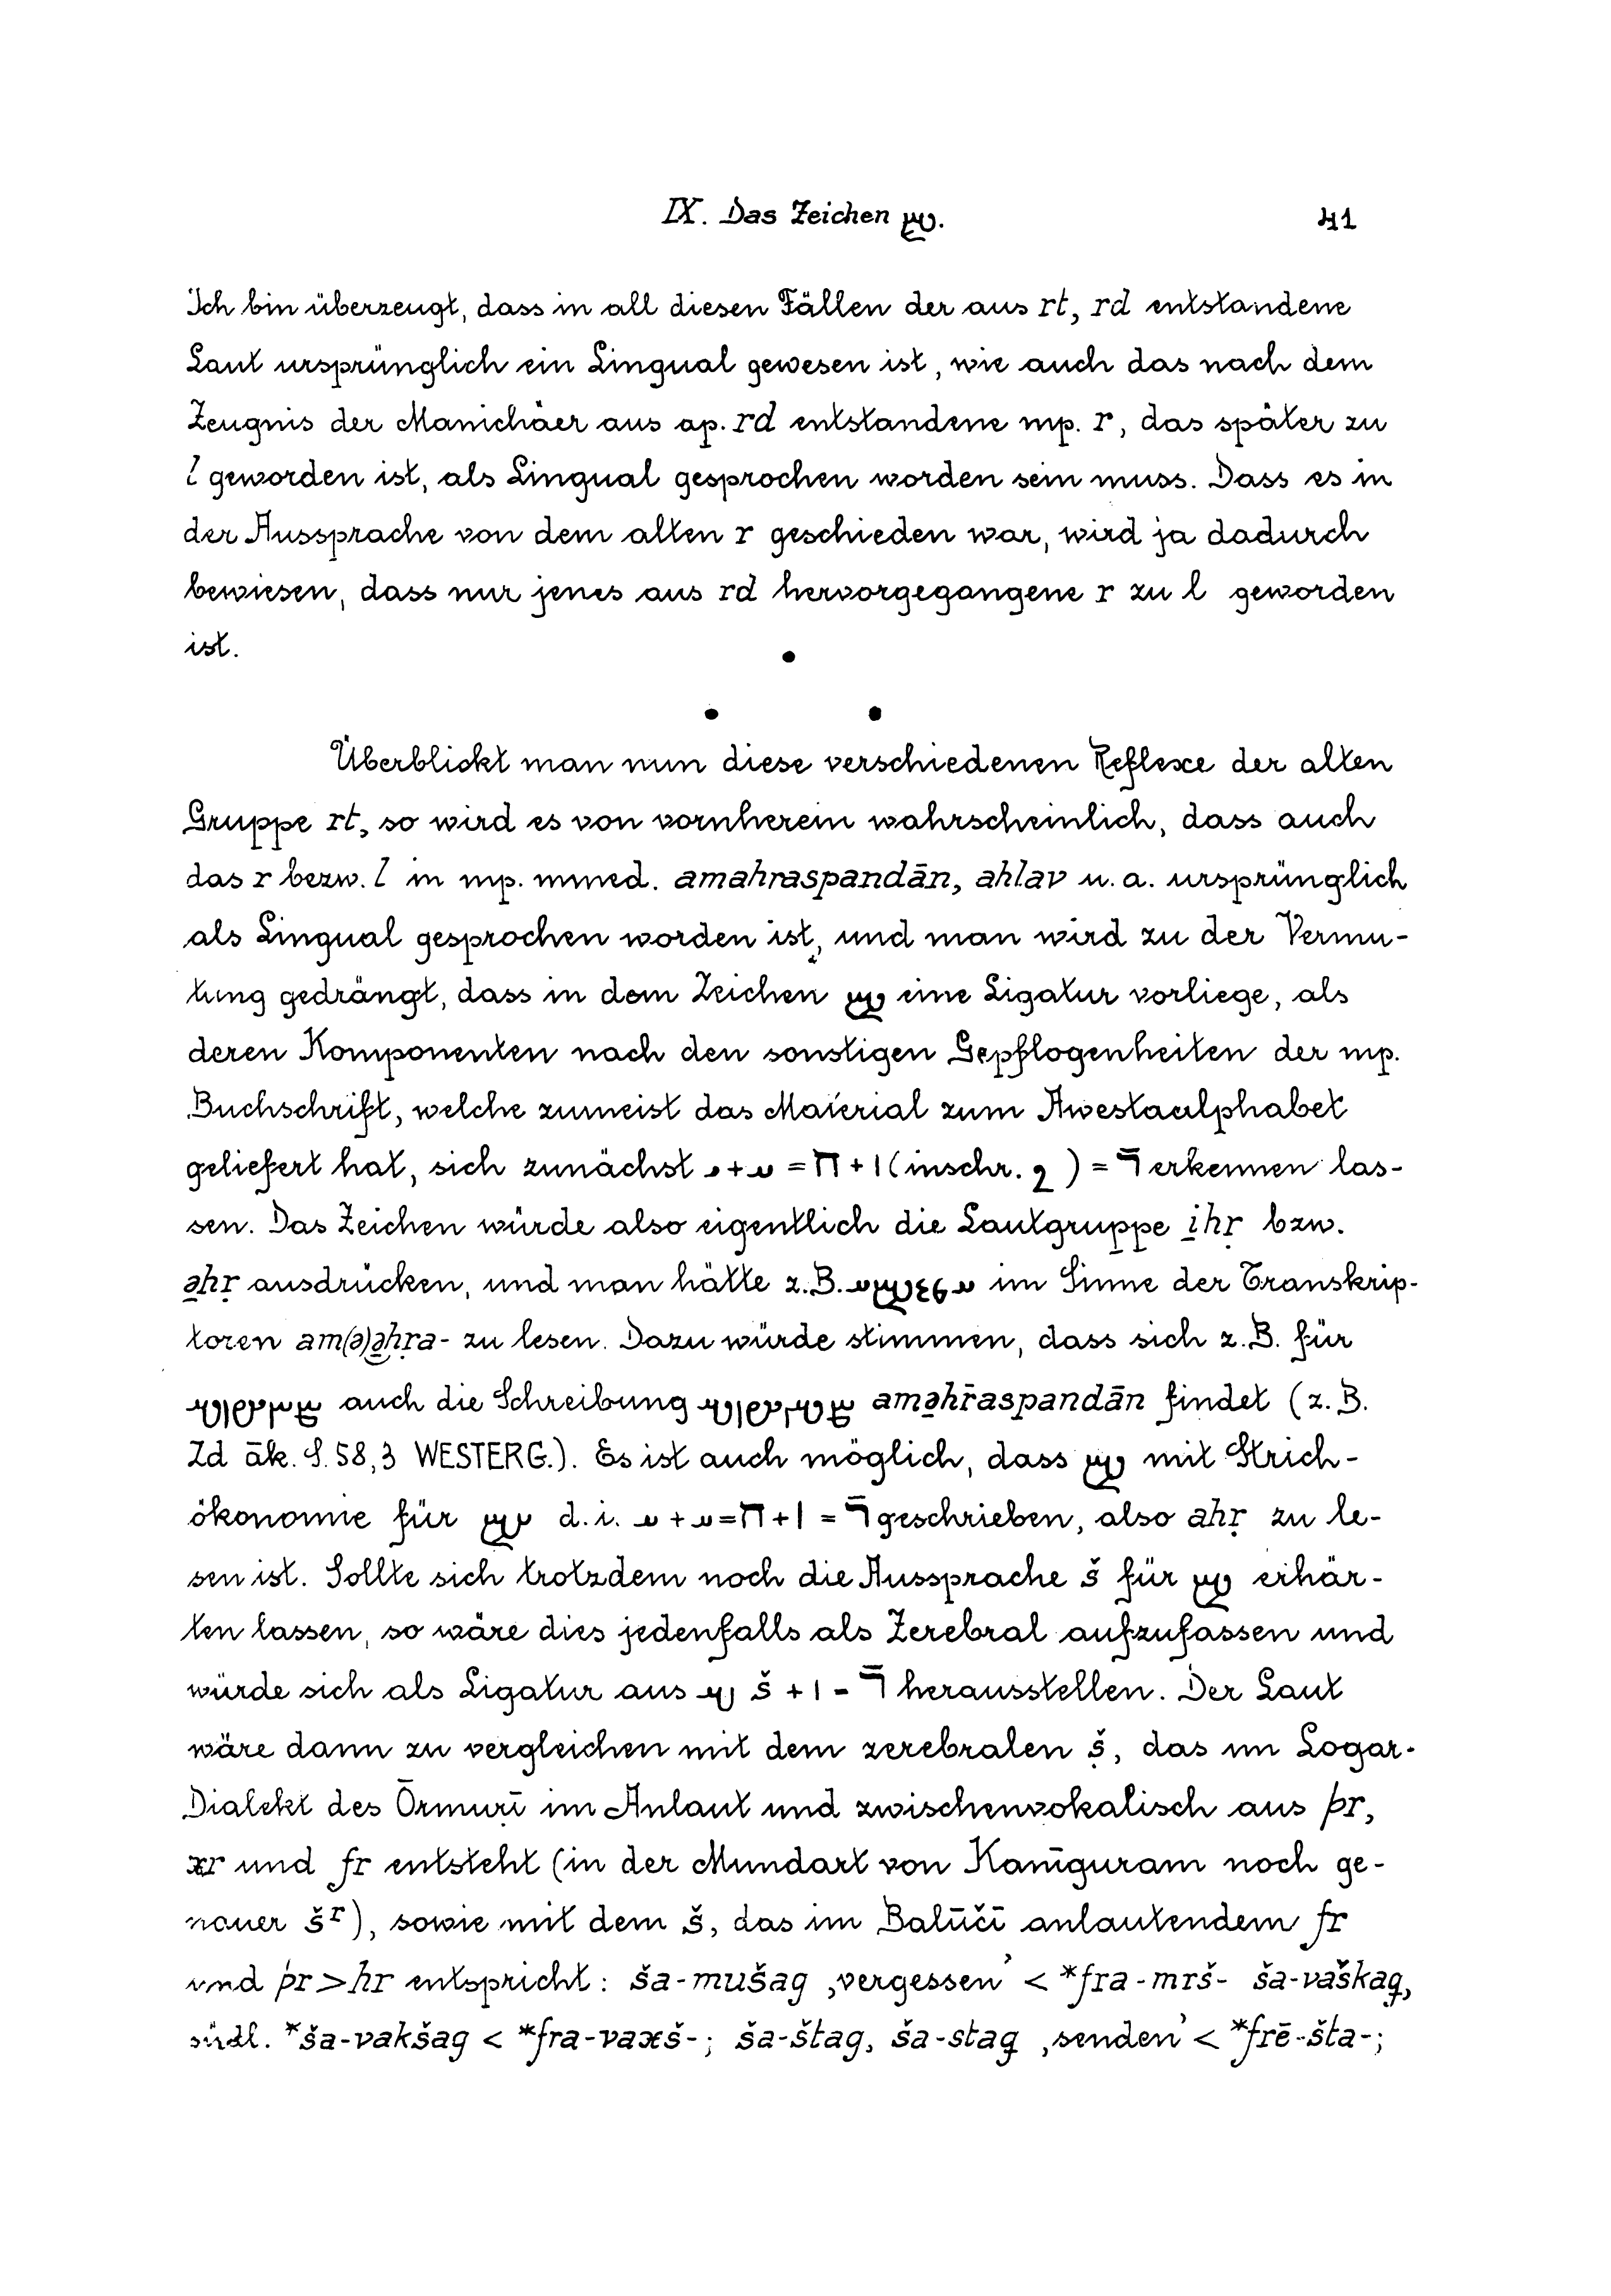 IX. Das Zeichen 𐬴. 41
Ich bin überzeugt, dass in all diesen Fällen der aus rt, rd entstandene
Laut ursprünglich ein Lingual gewesen ist, wie auch das nach dem
Zeugnis der Manichäer aus ap. rd entstandene mp. r, das später zu
l geworden ist, als Lingual gesprochen worden sein muss. Dass es in
der Aussprache von dem alten r geschieden war, wird ja dadurch
bewiesen, dass nur jenes aus rd hervorgegangene r zu l geworden
ist.
Überblickt man nun diese verschiedenen Reflexe der alten
Gruppe rt, so wird es von vornherein wahrscheinlich, dass auch
das r bezw. l in mp. mmed. amahraspandān, ahlav u. a. ursprünglich
als Lingual gesprochen worden ist, und man wird zu der Vermu-
tung gedrängt, dass in dem Zeichen 𐬴 eine Ligatur vorliege, als
deren Komponenten nach den sonstigen Gepflogenheiten der mp.
Buchschrift, welche zumeist das Material zum Awestaalphabet
geliefert hat, sich zunächst + = ח + ו (inschr. ) = ר̄ erkennen las-
sen. Das Zeichen würde also eigentlich die Lautgruppe i̱hṛ bzw.
ə̱hṛ ausdrücken, und man hätte z.B. im Sinne der Transkrip-
toren am(ə)ə̱hṛa- zu lesen. Dazu würde stimmen, dass sich z.B. für
auch die Schreibung amə̱hr̄aspandān findet (z. B.
Zd āk. S. 58,3 WESTERG.). Es ist auch möglich, dass 𐬴 mit Strich-
ökonomie für d. i. + = ח + ו = ר̄ geschrieben, also ahṛ zu le-
sen ist. Sollte sich trotzdem noch die Aussprache š für 𐬴 erhär-
ten lassen, so wäre dies jedenfalls als Zerebral aufzufassen und
würde sich als Ligatur aus š + ו = ר̄ herausstellen. Der Laut
wäre dann zu vergleichen mit dem zerebralen ṣ̌, das im Logar-
Dialekt des Ōrmuṛī im Anlaut und zwischenvokalisch aus þr,
xr und fr entsteht (in der Mundart von Kanīguram noch ge-
nauer šʳ), sowie mit dem š, das im Balūčī anlautendem fr
und þr > hr entspricht: ša-mušag ‚vergessen’ < *fra-mrš- ša-vaškag,
südl. *ša-vakšag < *fra-vaxš-; ša-štag, ša-stag ‚senden’ < *frē-šta-;